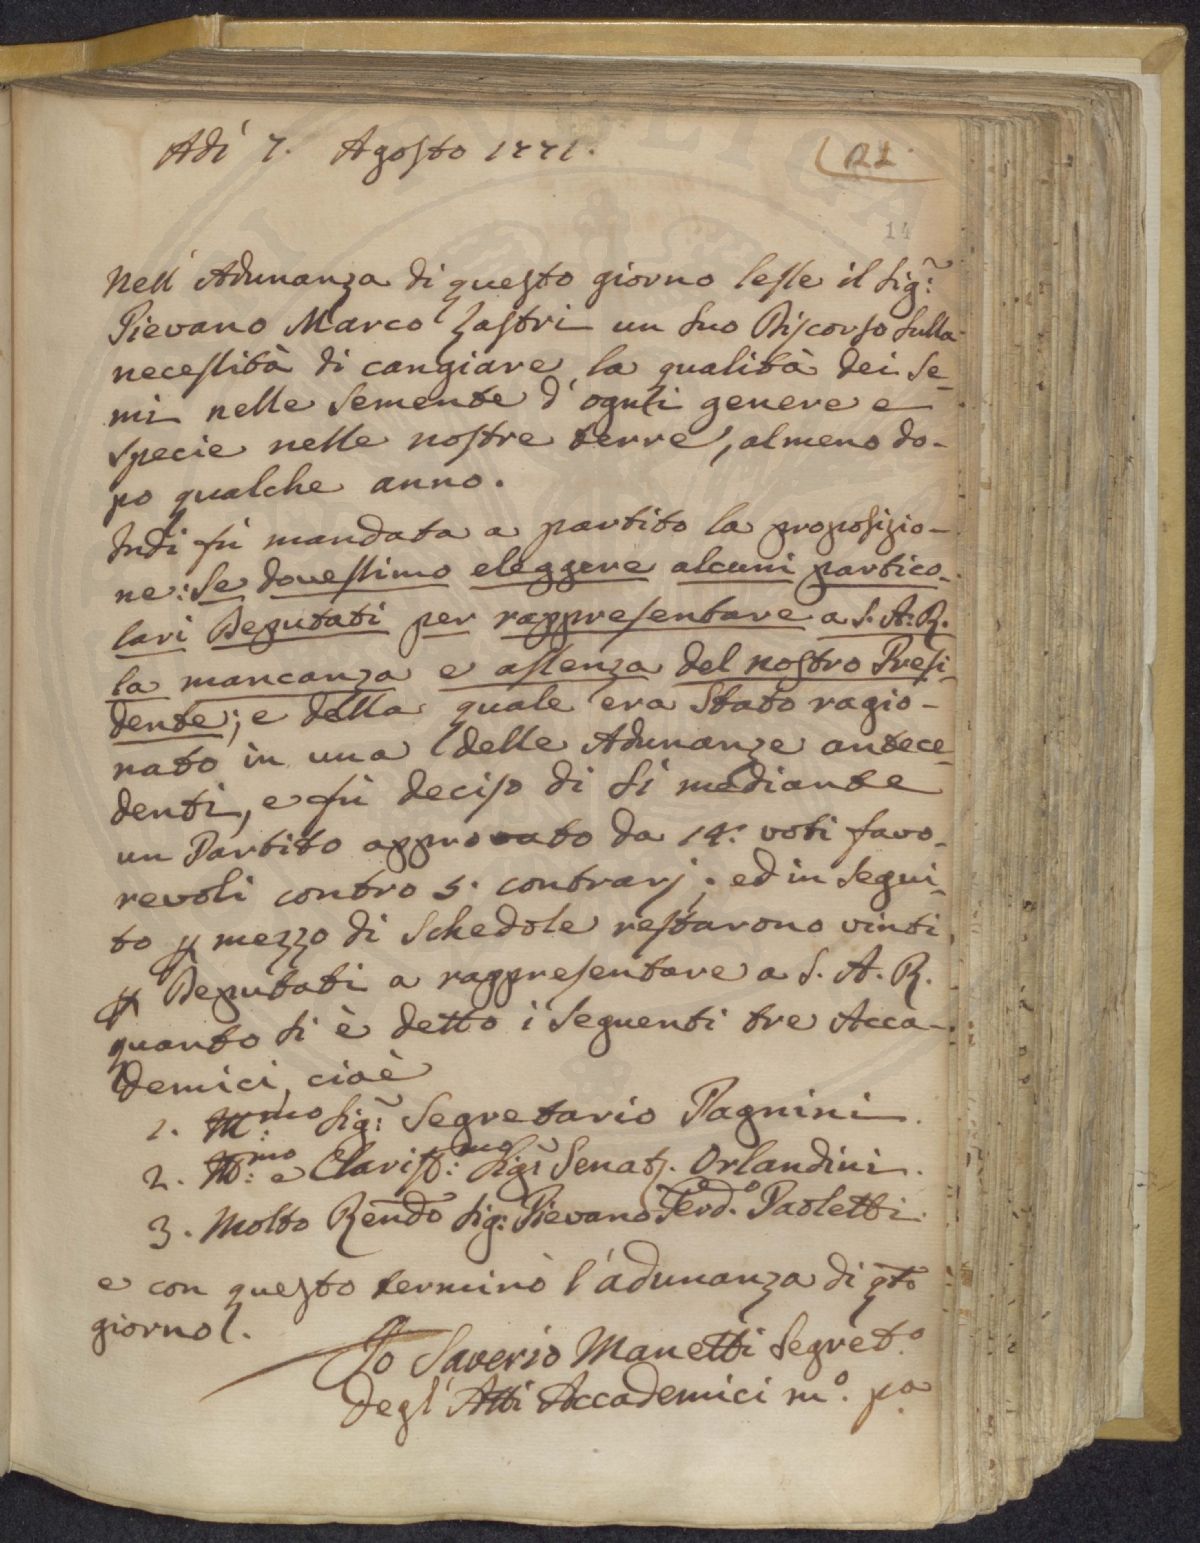 Adì 7. Agosto 1771.
14
Nell' Adunanza di questo giorno lesse il Sig.r
Pievano Marco Lastri un suo Discorso sulla
necessità di cangiare la qualità dei Se-
mi nelle Semente d'ogni genere e
specie nelle nostre terre, almeno do-
po qualche anno.
Indi fù mandata a partito la proposizio-
ne: Se dovessimo eleggere alcuni partico-
lari Deputati per rappresentare a S. A. R.
la mancanza e assenza del nostro Presi-
dente; e della quale era stato ragio-
nato in una delle Adunanze antece-
denti, e fù deciso di sì mediante
un Partito approvato da 14. voti favo-
revoli contro 5. contrarj; ed in segui-
to p mezzo di Schedole restarono vinti
p Deputati a rappresentare a S. A. R.
quanto si è detto i seguenti tre Acca-
demici cioè
1. Ill:mo Sig.r Segretario Pagnini
2. Ill:mo e Clariss:mo Sig.r Senat. Orlandini.
3. Molto Rendo Sig: Pievano Ferd.o Paoletti.
e con questo terminò l'adunanza di qto
giorno.
Io Saverio Manetti Segret.o
degl'Atti Accademici m.o p.a